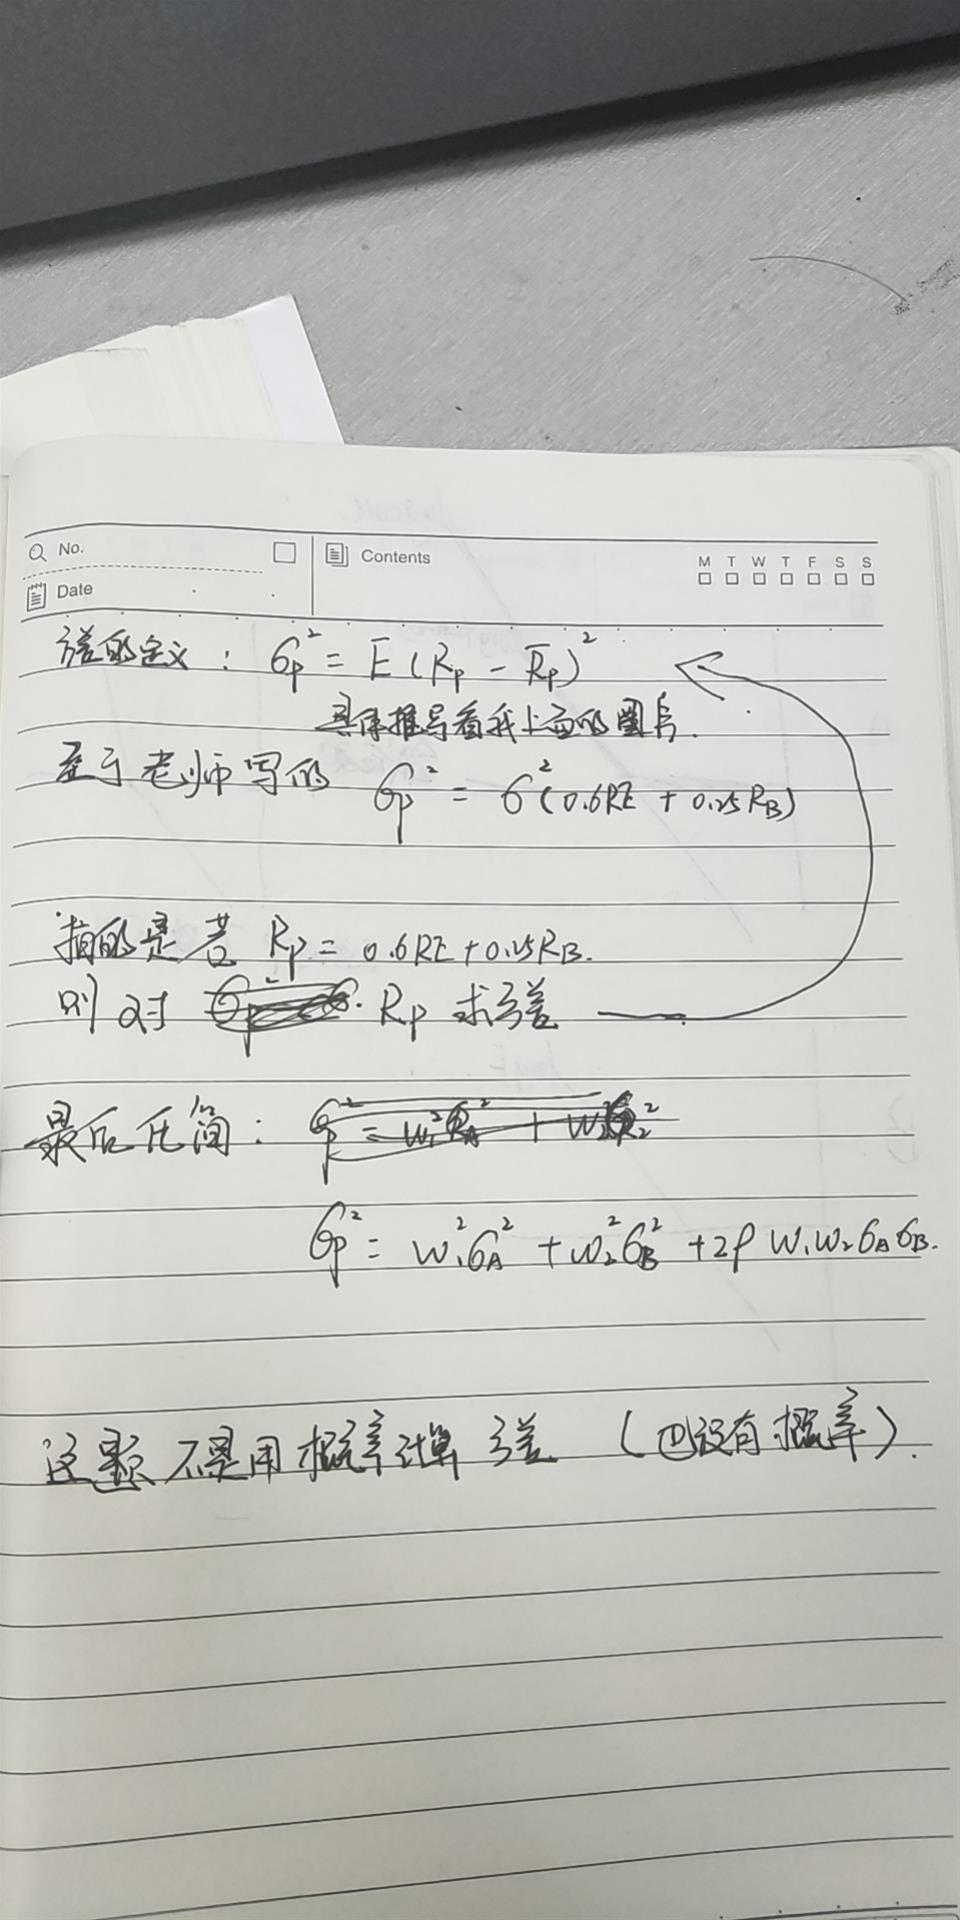 No.
Contents
M T W T F S S
Date
方差的定义: σp² = E(Rp - R̅p)²
具体推导看我上面的图片.
至于老师写的 σp² = σ²(0.6RE + 0.25RB)
指的是若 Rp = 0.6RE + 0.25RB.
则对 Rp 求方差
最后化简:
σp² = w₁²σA² + w₂²σB² + 2ρ w₁w₂σAσB.
这题不是用概率计算方差 (也没有概率).